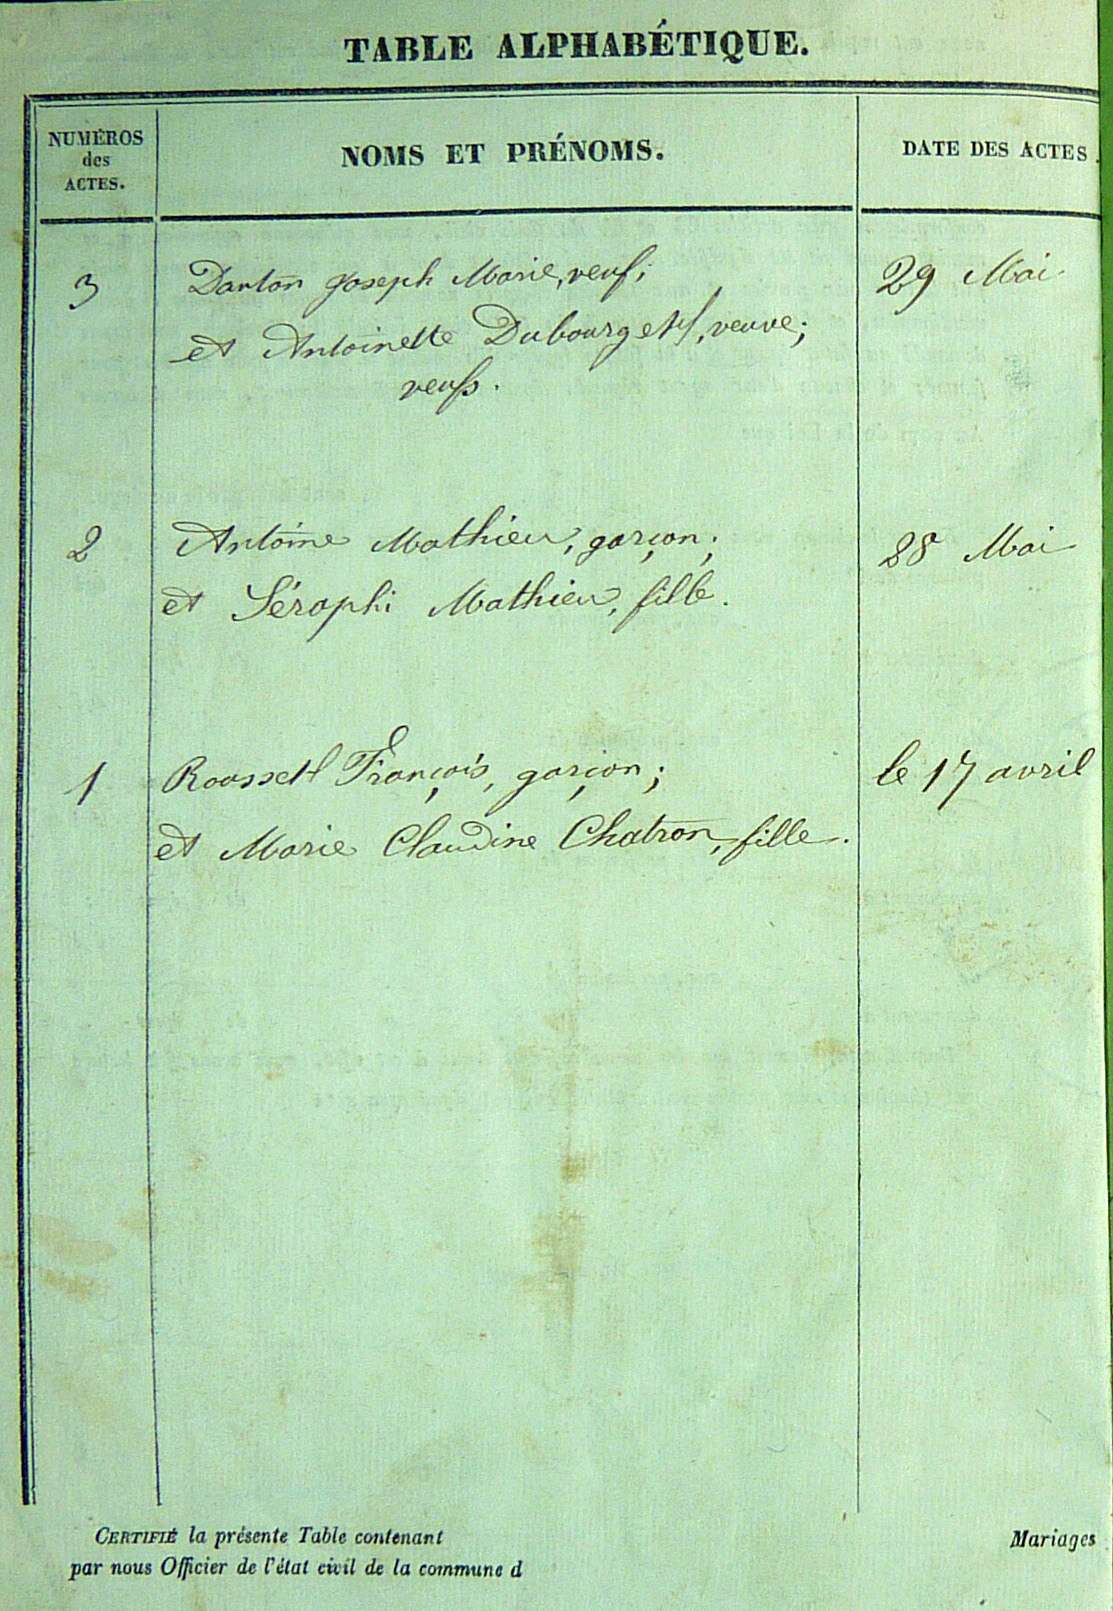 TABLE ALPHABÉTIQUE.
NUMÉROS
des
ACTES.
NOMS ET PRÉNOMS.
DATE DES ACTES.
3 Danton Joseph Marie, veuf; 29 Mai
et Antoinette Dubourgett, veuve;
veufs.
2 Antoine Mathieu, garçon; 28 Mai
et Séraphi Mathieu, fille.
1 Roussett François, garçon; le 17 avril
et Marie Claudine Chatron, fille.
CERTIFIÉ la présente Table contenant Mariages
par nous Officier de l'état civil de la commune d